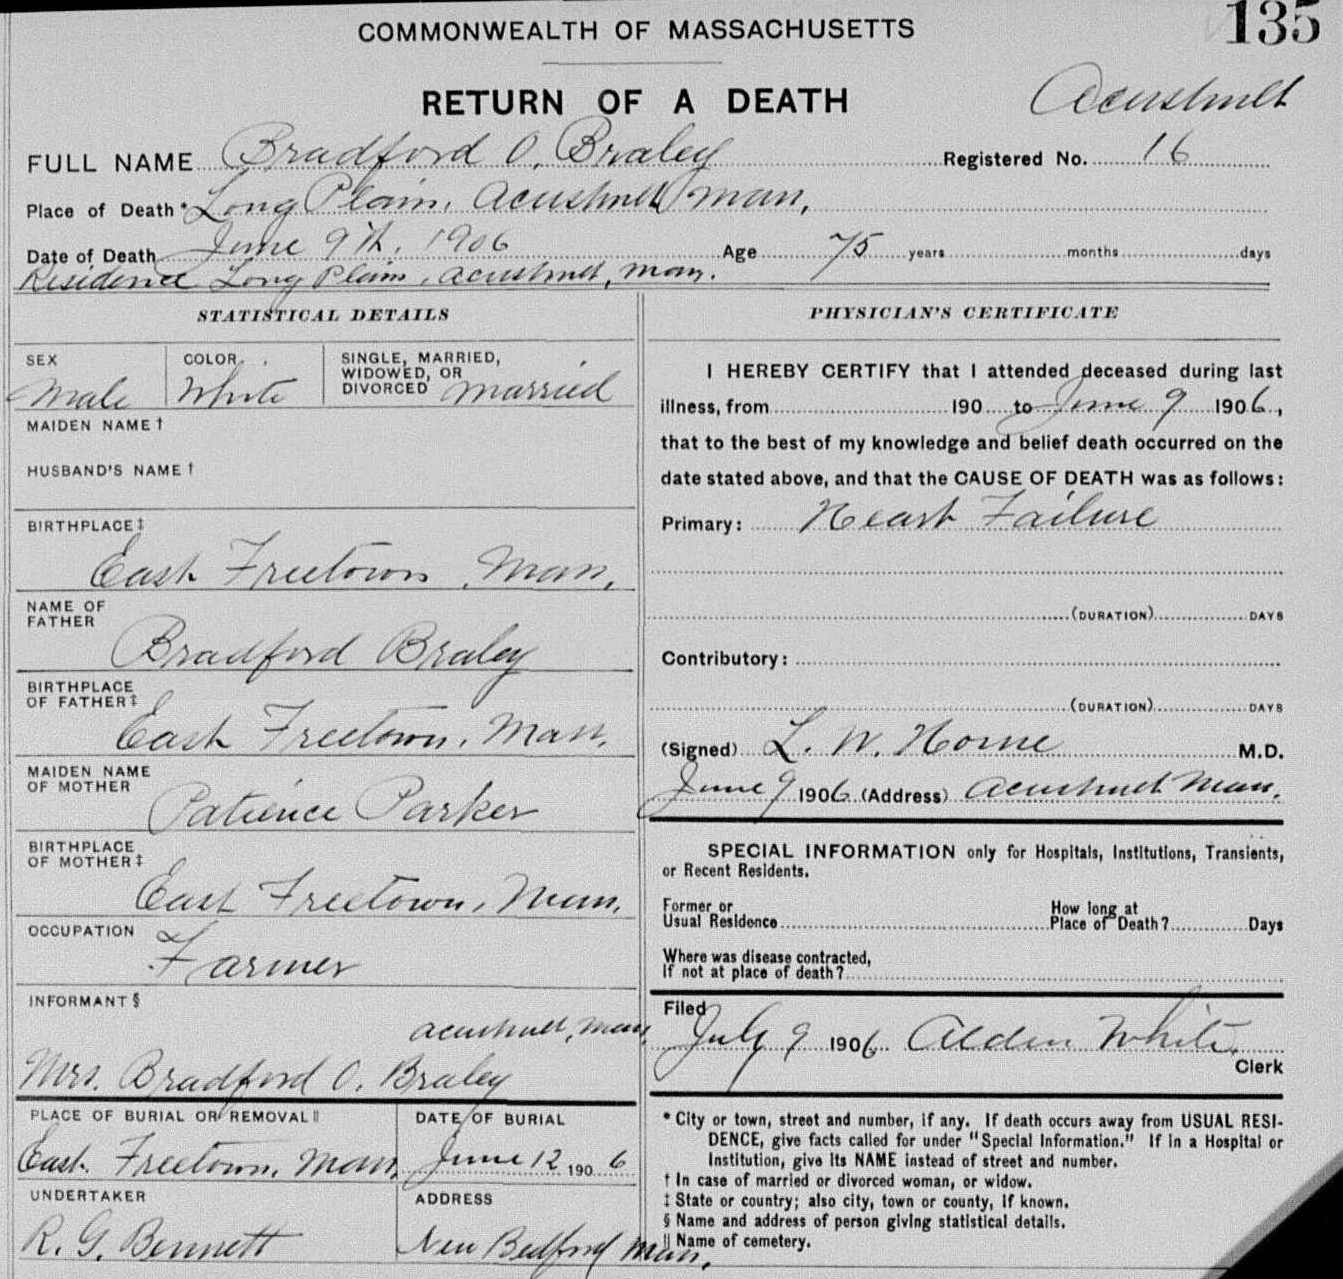 COMMONWEALTH OF MASSACHUSETTS
135
RETURN OF A DEATH
Acushnet
FULL NAME Bradford O. Braley Registered No. 16
Place of Death* Long Plain, Acushnet Mass,
Date of Death June 9th, 1906 Age 75 years months days
Residence Long Plain, Acushnet, Mass.
STATISTICAL DETAILS
SEX
Male
COLOR
White
SINGLE, MARRIED,
WIDOWED, OR
DIVORCED Married
MAIDEN NAME †
HUSBAND'S NAME †
BIRTHPLACE ‡
East Freetown, Mass,
NAME OF
FATHER
Bradford Braley
BIRTHPLACE
OF FATHER ‡
East Freetown, Mass,
MAIDEN NAME
OF MOTHER
Patience Parker
BIRTHPLACE
OF MOTHER ‡
East Freetown, Mass,
OCCUPATION
Farmer
INFORMANT §
Acushnet, Mass,
Mrs. Bradford O. Braley
PLACE OF BURIAL OR REMOVAL ||
East Freetown, Mass,
DATE OF BURIAL
June 12 1906
UNDERTAKER
R. G. Bennett
ADDRESS
New Bedford Mass,
PHYSICIAN'S CERTIFICATE
I HEREBY CERTIFY that I attended deceased during last
illness, from 190 to June 9 1906,
that to the best of my knowledge and belief death occurred on the
date stated above, and that the CAUSE OF DEATH was as follows:
Primary: Heart Failure
(DURATION) DAYS
Contributory:
(DURATION) DAYS
(Signed) L. W. Horne M.D.
June 9 1906 (Address) Acushnet Mass.
SPECIAL INFORMATION only for Hospitals, Institutions, Transients,
or Recent Residents.
Former or
Usual Residence
How long at
Place of Death? Days
Where was disease contracted,
If not at place of death?
Filed
July 9 1906 Alden White,
Clerk
* City or town, street and number, if any. If death occurs away from USUAL RESI-
DENCE, give facts called for under "Special Information." If in a Hospital or
Institution, give its NAME instead of street and number.
† In case of married or divorced woman, or widow.
‡ State or country; also city, town or county, if known.
§ Name and address of person giving statistical details.
|| Name of cemetery.